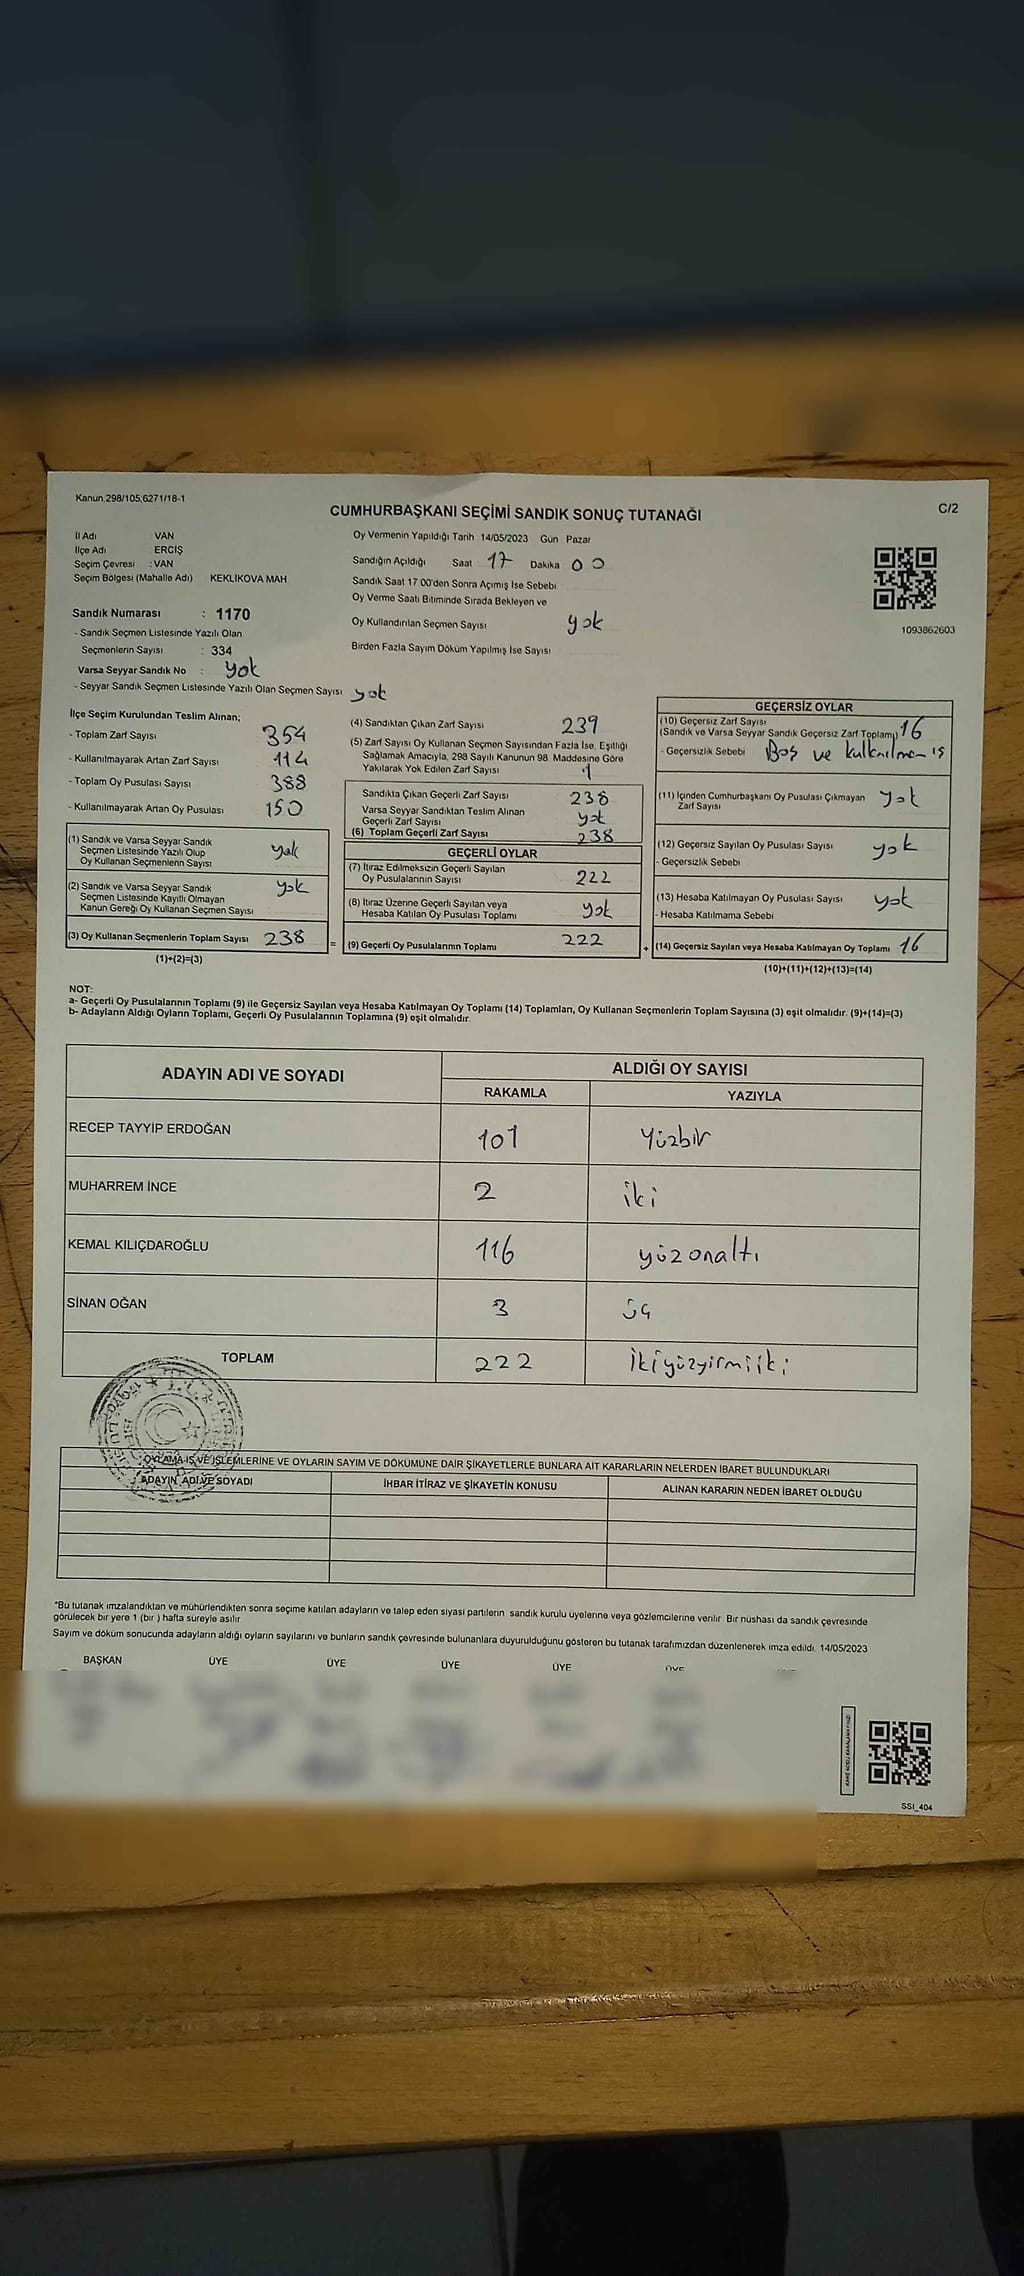 Kanun,298/105,6271/18-1
C/2
CUMHURBAŞKANI SEÇİMİ SANDIK SONUÇ TUTANAĞI
İl Adı VAN
İlçe Adı : ERCİŞ
Seçim Çevresi : VAN
Seçim Bölgesi (Mahalle Adı) KEKLİKOVA MAH
Sandık Numarası : 1170
- Sandık Seçmen Listesinde Yazılı Olan
Seçmenlerin Sayısı : 334
Varsa Seyyar Sandık No : yok
- Seyyar Sandık Seçmen Listesinde Yazılı Olan Seçmen Sayısı yok
Oy Vermenin Yapıldığı Tarih 14/05/2023 Gün Pazar
Sandığın Açıldığı Saat 17 Dakika 00
Sandık Saat 17 00'den Sonra Açımış İse Sebebi
Oy Verme Saati Bitiminde Sırada Bekleyen ve
Oy Kullandırılan Seçmen Sayısı yok
Birden Fazla Sayım Döküm Yapılmış İse Sayısı
1093862603
İlçe Seçim Kurulundan Teslim Alınan;
- Toplam Zarf Sayısı 354
- Kullanılmayarak Artan Zarf Sayısı 114
- Toplam Oy Pusulası Sayısı 388
- Kullanılmayarak Artan Oy Pusulası 150
(1) Sandık ve Varsa Seyyar Sandık
Seçmen Listesinde Yazılı Olup
Oy Kullanan Seçmenlerin Sayısı yok
(2) Sandık ve Varsa Seyyar Sandık
Seçmen Listesinde Kayıtlı Olmayan
Kanun Gereği Oy Kullanan Seçmen Sayısı yok
(3) Oy Kullanan Seçmenlerin Toplam Sayısı 238
(1)+(2)=(3)
=
(4) Sandıktan Çıkan Zarf Sayısı 239
(5) Zarf Sayısı Oy Kullanan Seçmen Sayısından Fazla İse, Eşitliği
Sağlamak Amacıyla, 298 Sayılı Kanunun 98. Maddesine Göre
Yakılarak Yok Edilen Zarf Sayısı 1
Sandıkta Çıkan Geçerli Zarf Sayısı 238
Varsa Seyyar Sandıktan Teslim Alınan
Geçerli Zarf Sayısı yok
(6) Toplam Geçerli Zarf Sayısı 238
GEÇERLİ OYLAR
(7) İtiraz Edilmeksizin Geçerli Sayılan
Oy Pusulalarının Sayısı 222
(8) İtiraz Üzerine Geçerli Sayılan veya
Hesaba Katılan Oy Pusulası Toplamı yok
(9) Geçerli Oy Pusulalarının Toplamı 222
+
GEÇERSİZ OYLAR
(10) Geçersiz Zarf Sayısı
(Sandık ve Varsa Seyyar Sandık Geçersiz Zarf Toplamı) 16
- Geçersizlik Sebebi Boş ve kullanılmamış
(11) İçinden Cumhurbaşkanı Oy Pusulası Çıkmayan
Zarf Sayısı yok
(12) Geçersiz Sayılan Oy Pusulası Sayısı yok
- Geçersizlik Sebebi
(13) Hesaba Katılmayan Oy Pusulası Sayısı yok
- Hesaba Katılmama Sebebi
(14) Geçersiz Sayılan veya Hesaba Katılmayan Oy Toplamı 16
(10)+(11)+(12)+(13)=(14)
NOT:
a- Geçerli Oy Pusulalarının Toplamı (9) ile Geçersiz Sayılan veya Hesaba Katılmayan Oy Toplamı (14) Toplamları, Oy Kullanan Seçmenlerin Toplam Sayısına (3) eşit olmalıdır. (9)+(14)=(3)
b- Adayların Aldığı Oyların Toplamı, Geçerli Oy Pusulalarının Toplamına (9) eşit olmalıdır.
ADAYIN ADI VE SOYADI
ALDIĞI OY SAYISI
RAKAMLA YAZIYLA
RECEP TAYYİP ERDOĞAN 101 Yüzbir
MUHARREM İNCE 2 iki
KEMAL KILIÇDAROĞLU 116 yüzonaltı
SİNAN OĞAN 3 üç
TOPLAM 222 ikiyüzyirmiiki
OYLAMA İŞ VE İŞLEMLERİNE VE OYLARIN SAYIM VE DÖKÜMÜNE DAİR ŞİKAYETLERLE BUNLARA AİT KARARLARIN NELERDEN İBARET BULUNDUKLARI
ADAYIN ADI VE SOYADI İHBAR İTİRAZ VE ŞİKAYETİN KONUSU ALINAN KARARIN NEDEN İBARET OLDUĞU
*Bu tutanak imzalandıktan ve mühürlendikten sonra seçime katılan adayların ve talep eden siyasi partilerin sandık kurulu üyelerine veya gözlemcilerine verilir Bir nüshası da sandık çevresinde
görülecek bir yere 1 (bir ) hafta süreyle asılır
Sayım ve döküm sonucunda adayların aldığı oyların sayılarını ve bunların sandık çevresinde bulunanlara duyurulduğunu gösteren bu tutanak tarafımızdan düzenlenerek imza edildi. 14/05/2023
BAŞKAN ÜYE ÜYE ÜYE ÜYE ÜYE
SSI_404